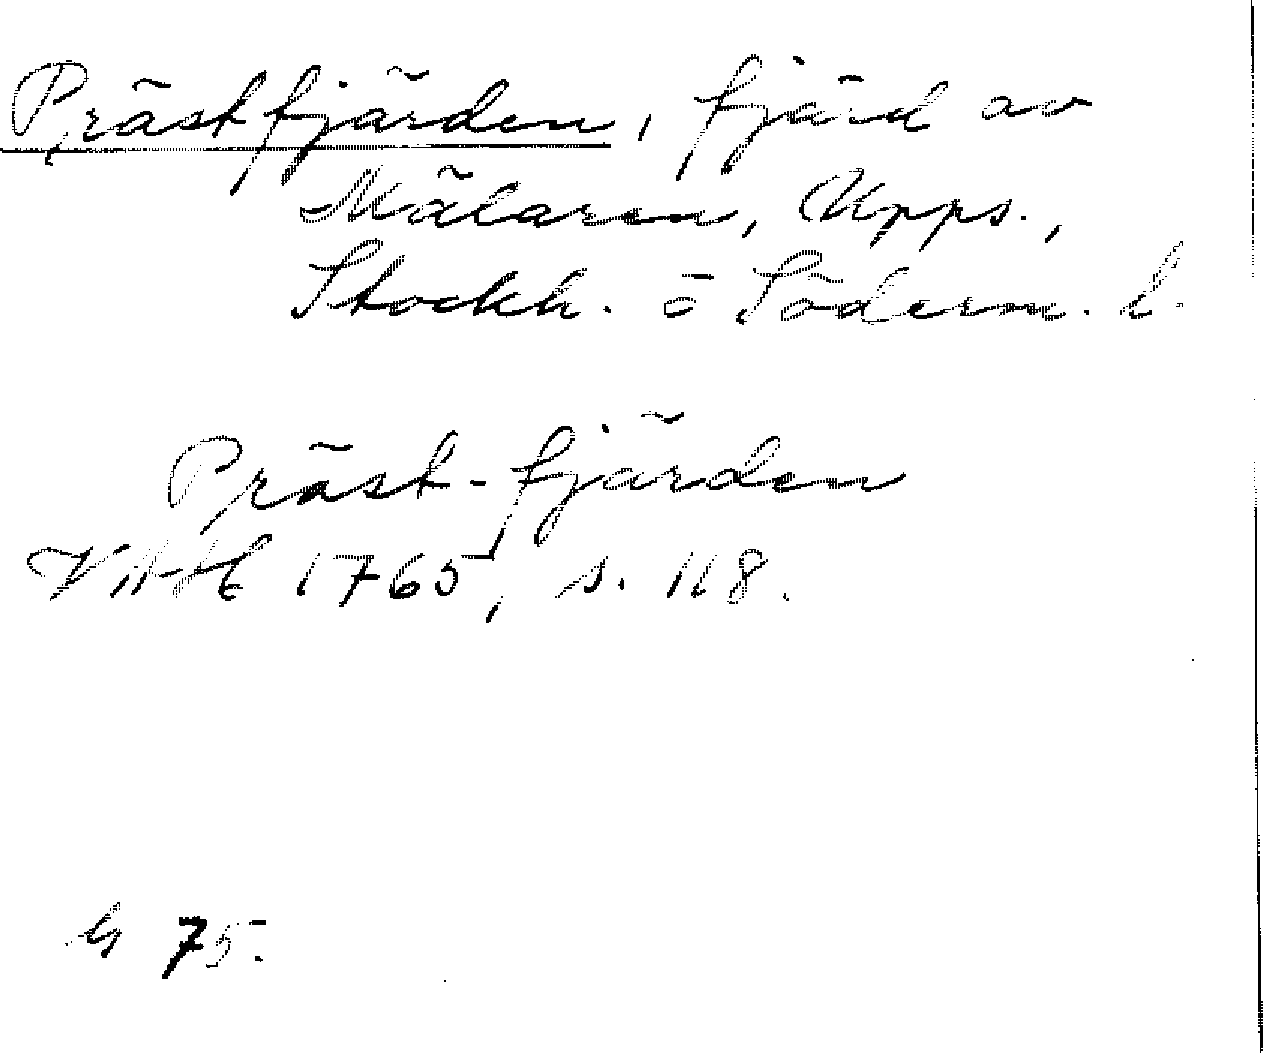 Prästfjärden, fjärd av
Mälaren, Upps.,
Stockh. o Söderm. l.
Präst-fjärden
VAH 1765, s. 118.
G 75.